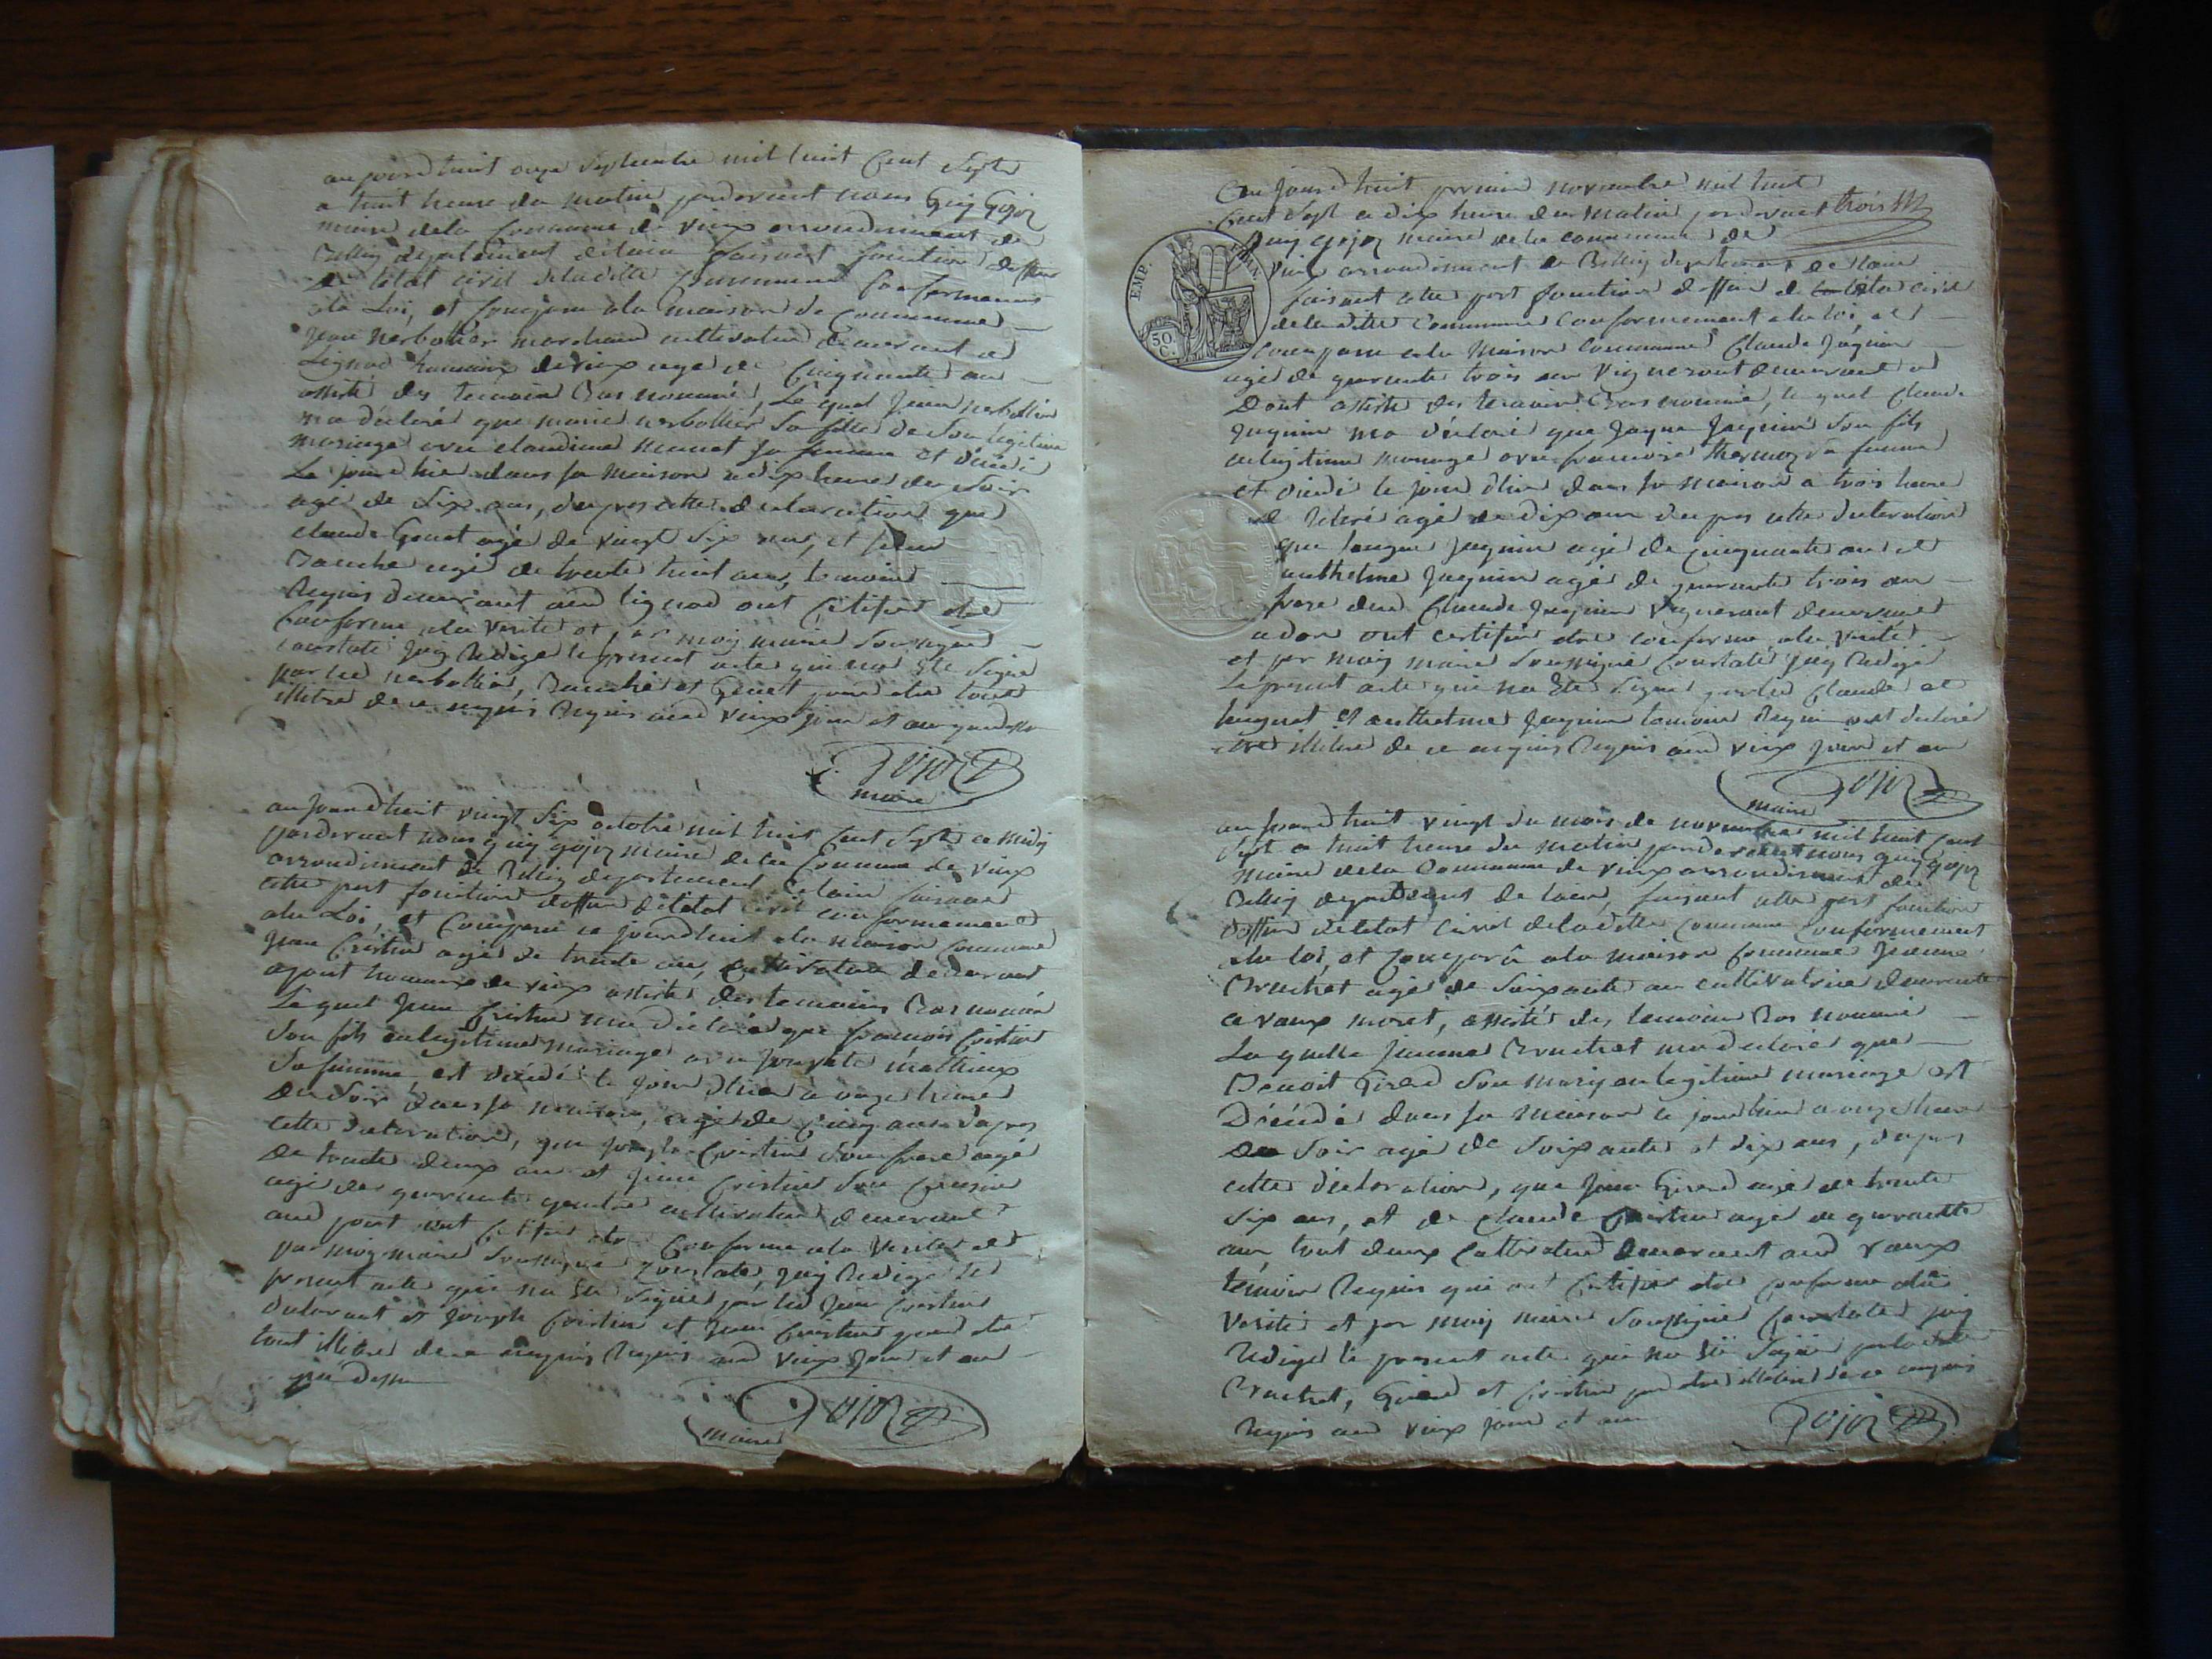 aujourdhuit onze Septembre mil huit Cent Septe
a huit heure du matin pardevant nous Guy Gojoz
maire dela Commune de vieux arrondissement de
Belley departement delain faisant fonction
de letat civil deladitte Commune Conformement
ala Loi, et Comparu ala maison de Commune
jean nerbollier marchand cultivateur demeurant a
Lignod hameau de vieux age de Cinquante an
assisté des temoins Bas nommé, Le quel jean nerbollier
ma déclaré que marie nerbollier Sa fille de Son legitime
mariage avec claudine monet Sa femme Et décédé
Le jourd hier dans Sa maison a dix heure du Soir
age de Six ans, dapres cette declaration que
claude Genet agé de vingt Six ans, et
Bauche agé de trente huit ans, temoins
Requis demeurant aud lignod ont Certifié etre
Conforme ala verité et, par moy maire Soussigné
Constaté jay Redigé le present acte qui na Eté Signé
par led nerbollier, Bauche et Genet pour etre tous
illitré de ce requis Requis aud vieux jour et an que dessus
Gojoz
maire
aujourdhuit vingt Six octobre mil huit Cent Septe a midy
pardevant nous guy gojoz maire dela Commune de vieux
arrondissement de Belley departement delain faisant
cette part fonction doffier deletat civil conformement
ala Loi, et Comparu ce jourdhuit ala maison Commune
jean Cristin agé de trente an, Cultivateur demeurant
apont hameau de vieux assisté des temoins Bas nommé
Le quel jean Cristin ma déclaré que francois Cristin
Son fils enlegitime mariage avec josephte mathieux
Sa femme, est décédé le jour dhier à onze heure
du Soir dans Sa maison, agé de Cinq ans dapres
cette declaration, que joseph Cristin Son frere agé
de trente deux an et jean Cristin Son Cousin
agé de quarante quatre cultivateur demeurant
aud pont ont Certifié etre Conforme ala Verité et
par moy maire Soussigné Constaté, jay Redigé le
present acte qui na Eté Signé par led jean Cristin
declarant et joseph Cristin et jean Cristin pour etre
tout illitré de ce requis Requis aud vieux jour et an
que dessu
Gojoz
maire
Cejourdhuit premier novembre mil huit
Cent Sept a dix heure du Matin pardevant
trois
guy gojoz maire dela commune de
vieux arrondissement de Belley departement de lain
faisant cette part fonction doffier de letat civil
deladitte Commune Conformement ala loi, et
Comparu ala Maison Commune Claude Juguin
agé de quarante trois an vigneront demeurant a
Dont assisté des temoin Bas nommé, le quel Claude
juguin ma déclaré que Juguin Son fils
enlegitime mariage avec francoise thermoz Sa femme
et décédé le jour dhier dans Sa maison a trois heure
agé de dix an dapres cette declaration
que juguin agé de cinquante an et
anthelme Juguin agé de quarante trois an
frere dud Claude juguin vigneront demeurant
a don ont certifié etre conforme ala verité
et par moy maire Soussigné Constaté jay Redigé
Le present acte qui na Eté Signé par led Claude et
huguet et anthelme juguin temoin Requis ont declaré
etre illitré de ce requis Requis aud vieux jour et an
Gojoz
maire
aujourdhuit vingt du mois de novembre mil huit Cent
Sept a huit heure du matin pardevant nous guy gojoz
maire dela Commune de vieux arrondissement de
Belley departement de lain, faisant cette part fonction
doffier deletat Civil deladitte Commune Conformement
ala loi, et Comparu ala maison Commune Jeanne
Bruchet agé de Soixante an cultivatrice demeurante
a vaux moret, assisté des temoin Bas nommé
La quelle jeanne Bruchet ma declaré que
Benoit Girod Son mary en legitime mariage est
Décédé dans Sa Maison le jour hier a onze heure
du Soir agé de Soixante et dix ans, dapres
cette declaration, que jean Girod agé de trente
Six ans, et de Claude Cristin agé de quarante
an, tout deux Cultivateur demeurant aud vaux
temoin Requis qui ont Certifié etre conforme ala
verité et par moy maire Soussigné Constaté jay
Redigé le present acte qui na Eté Signé par ladite
Bruchet, Girod et Cristin pour etre illitré de ce requis
Requis aud vieux jour et an
Gojoz
EMP. FRAN
50 C.